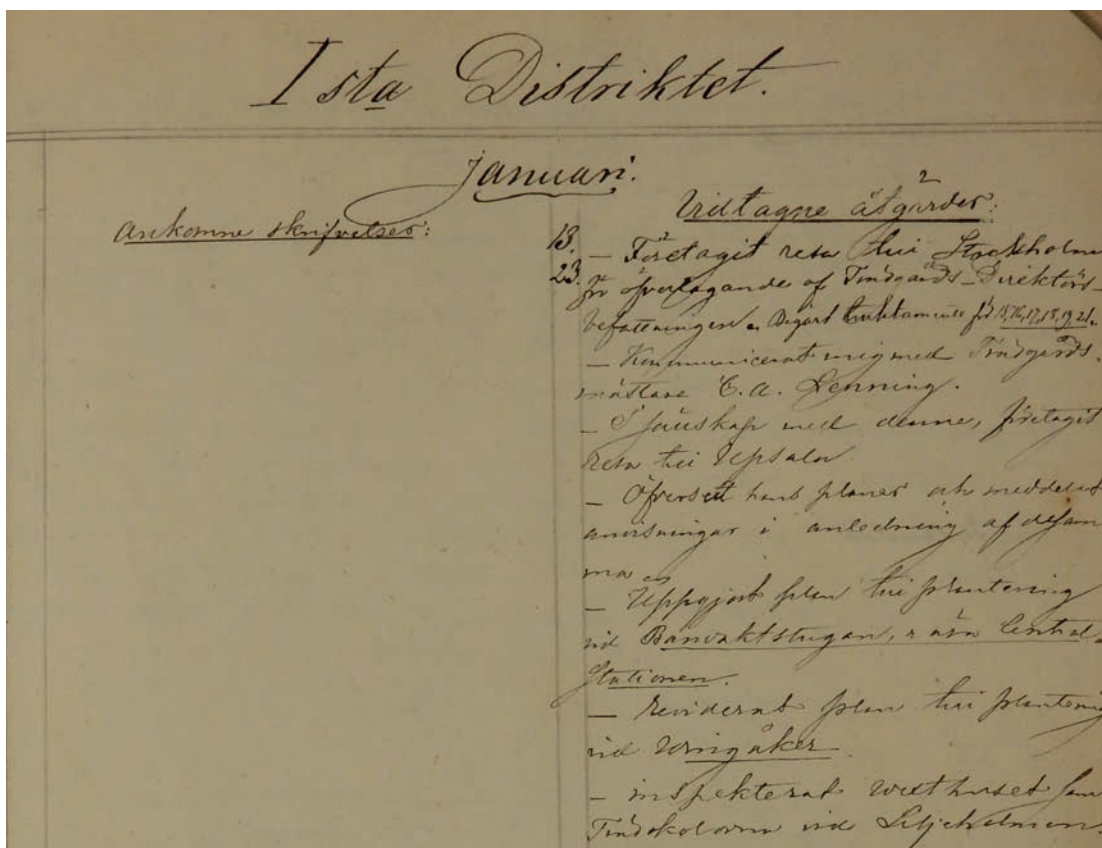 I sta Distriktet.
Januari.
Ankomne skrifvelser:
Vidtagne åtgärder:
13. — Företagit resa till Stockholm
23. för öfvertagande af Trädgårds-Direktörs-
befattningen. Begärt traktamente för 15, 16, 17, 18, 19, 21.
— Kommunicerat mig med Trädgårds-
mästare C. A. Lenning.
— I sällskap med denne, företagit
resa till Upsala
— Öfversett hans planer och meddelat
anvisningar i anledning af desam
ma
— Uppgjort plan till plantering
vid Banvaktstugan, Central-
Stationen.
— Reviderat plan till plantering
vid Wingåker.
— inspekterat wexthuset samt
Trädskolorna vid Liljeholmen.